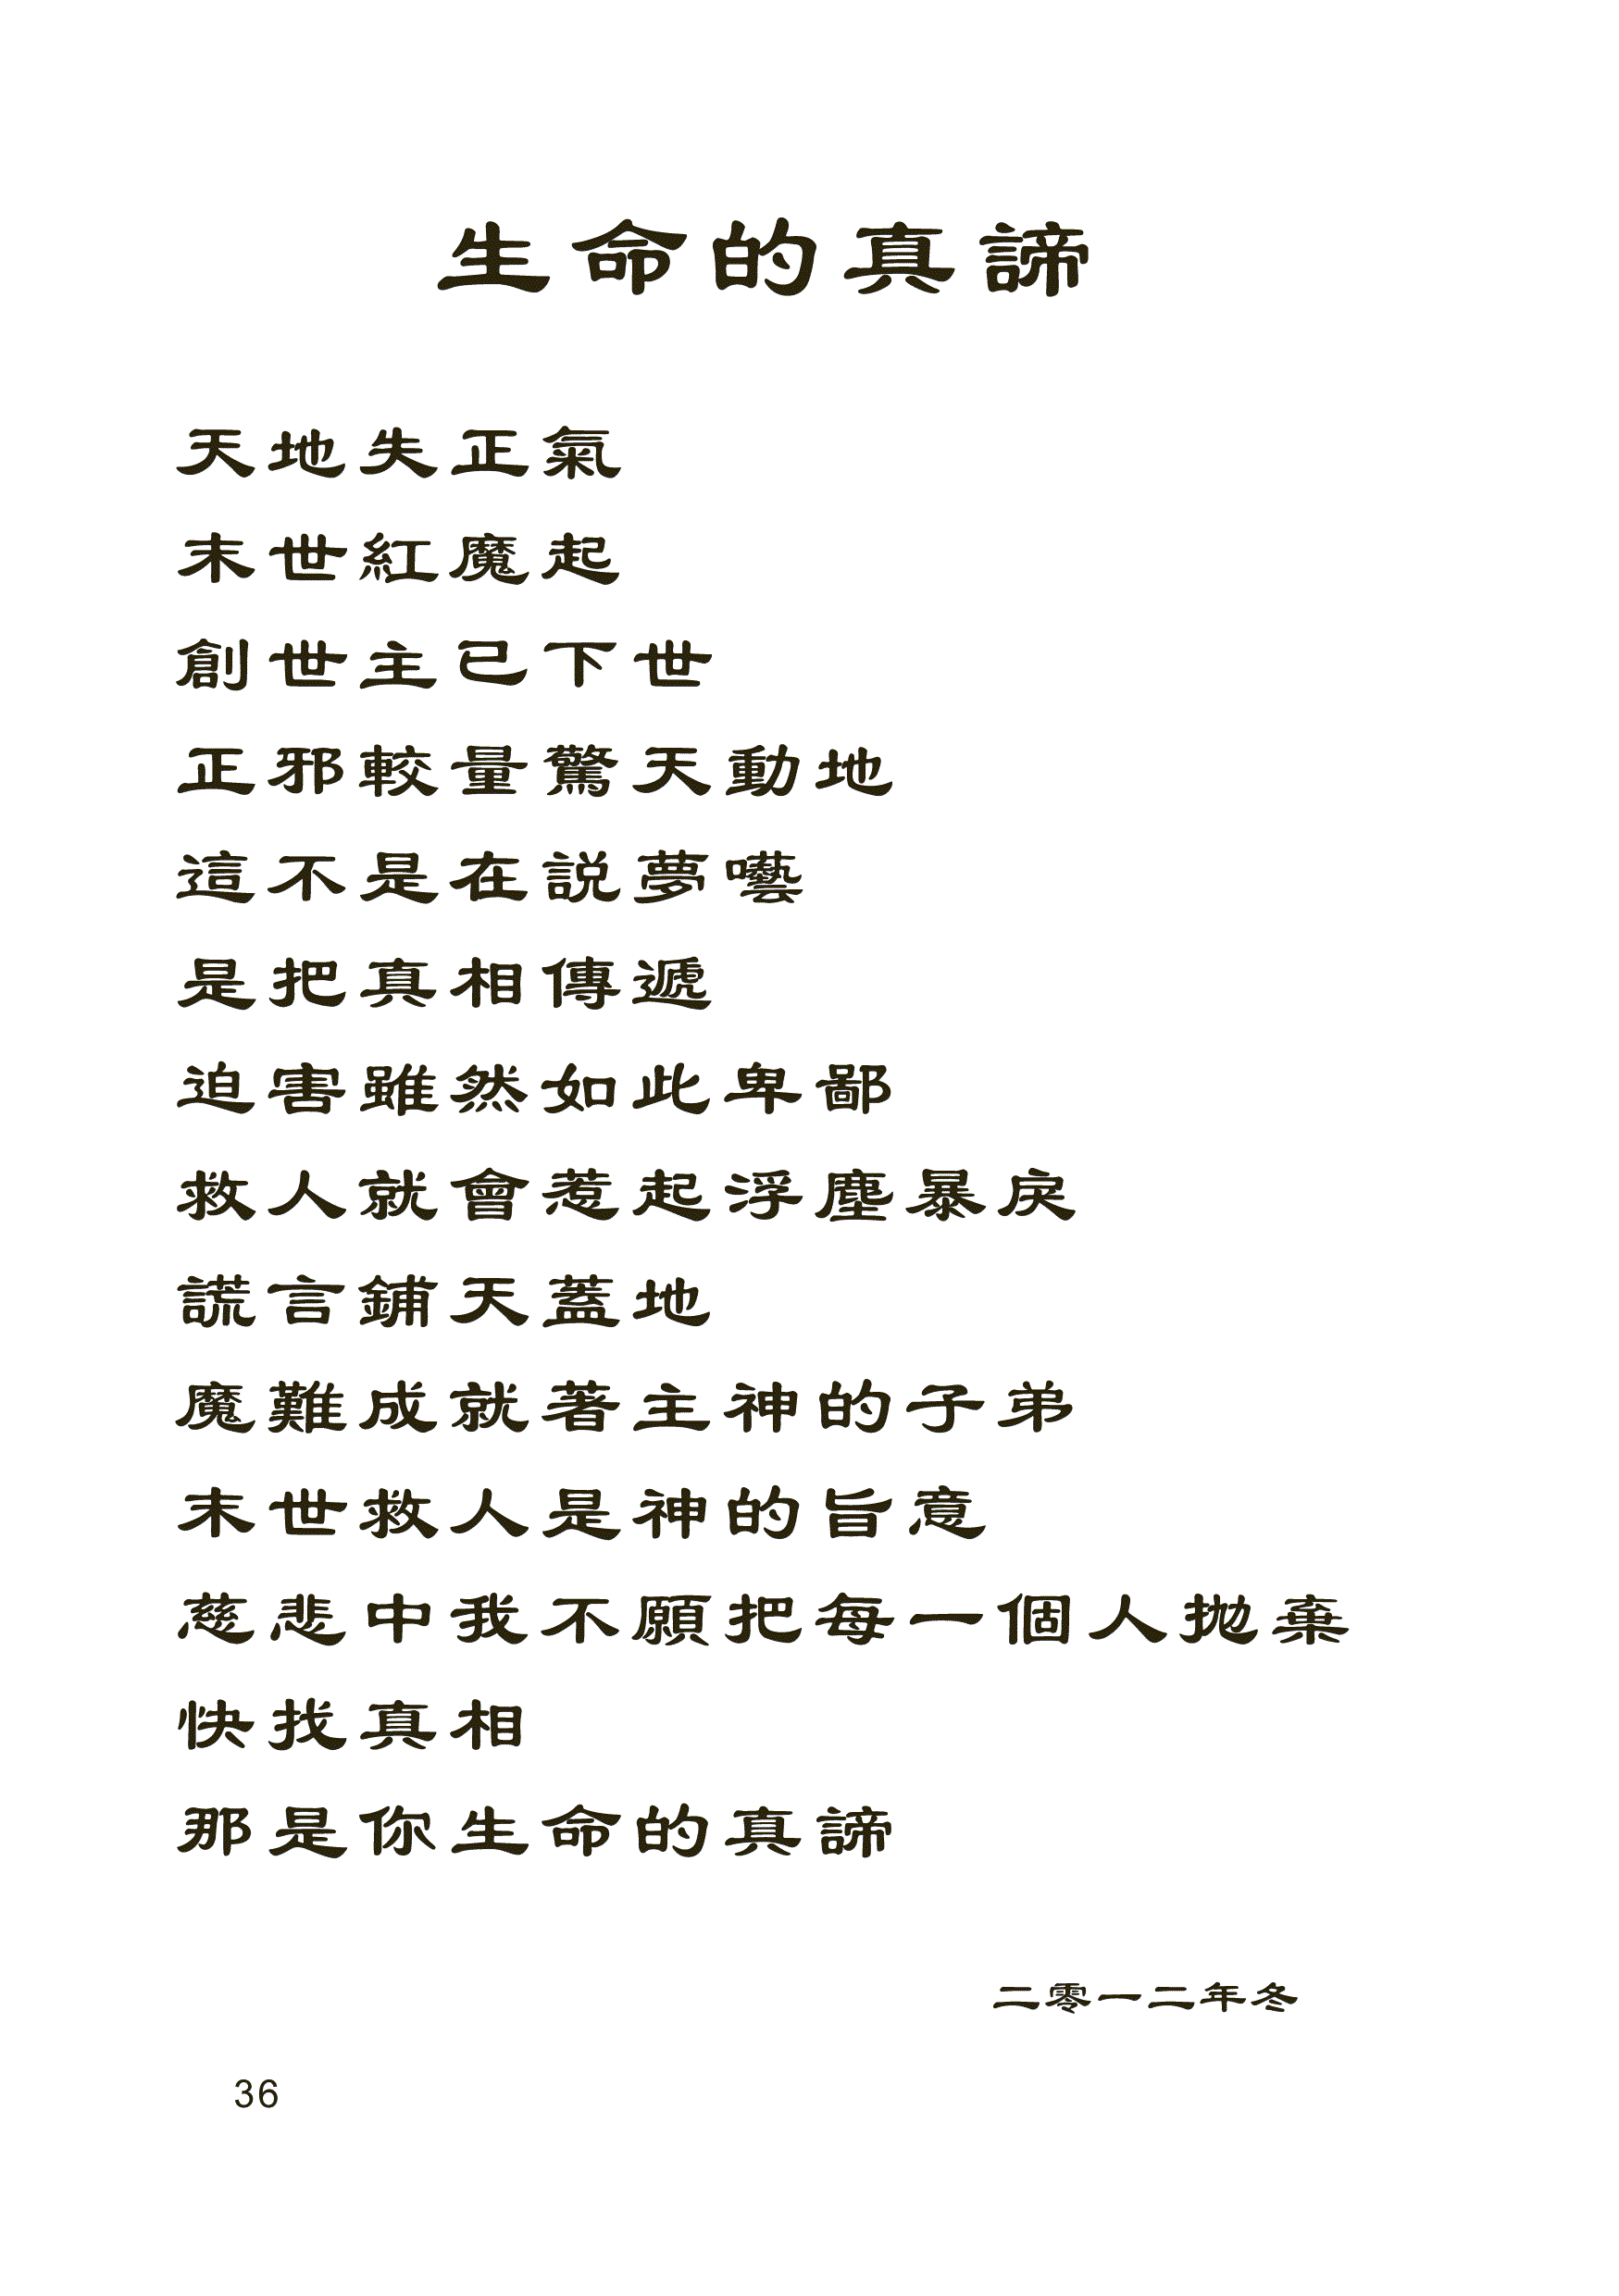 生命的真諦
天地失正氣
末世紅魔起
創世主已下世
正邪較量驚天動地
這不是在説夢囈
是把真相傳遞
迫害雖然如此卑鄙
救人就會惹起浮塵暴戾
謊言鋪天蓋地
魔難成就著主神的子弟
末世救人是神的旨意
慈悲中我不願把每一個人拋棄
快找真相
那是你生命的真諦
二零一二年冬
36